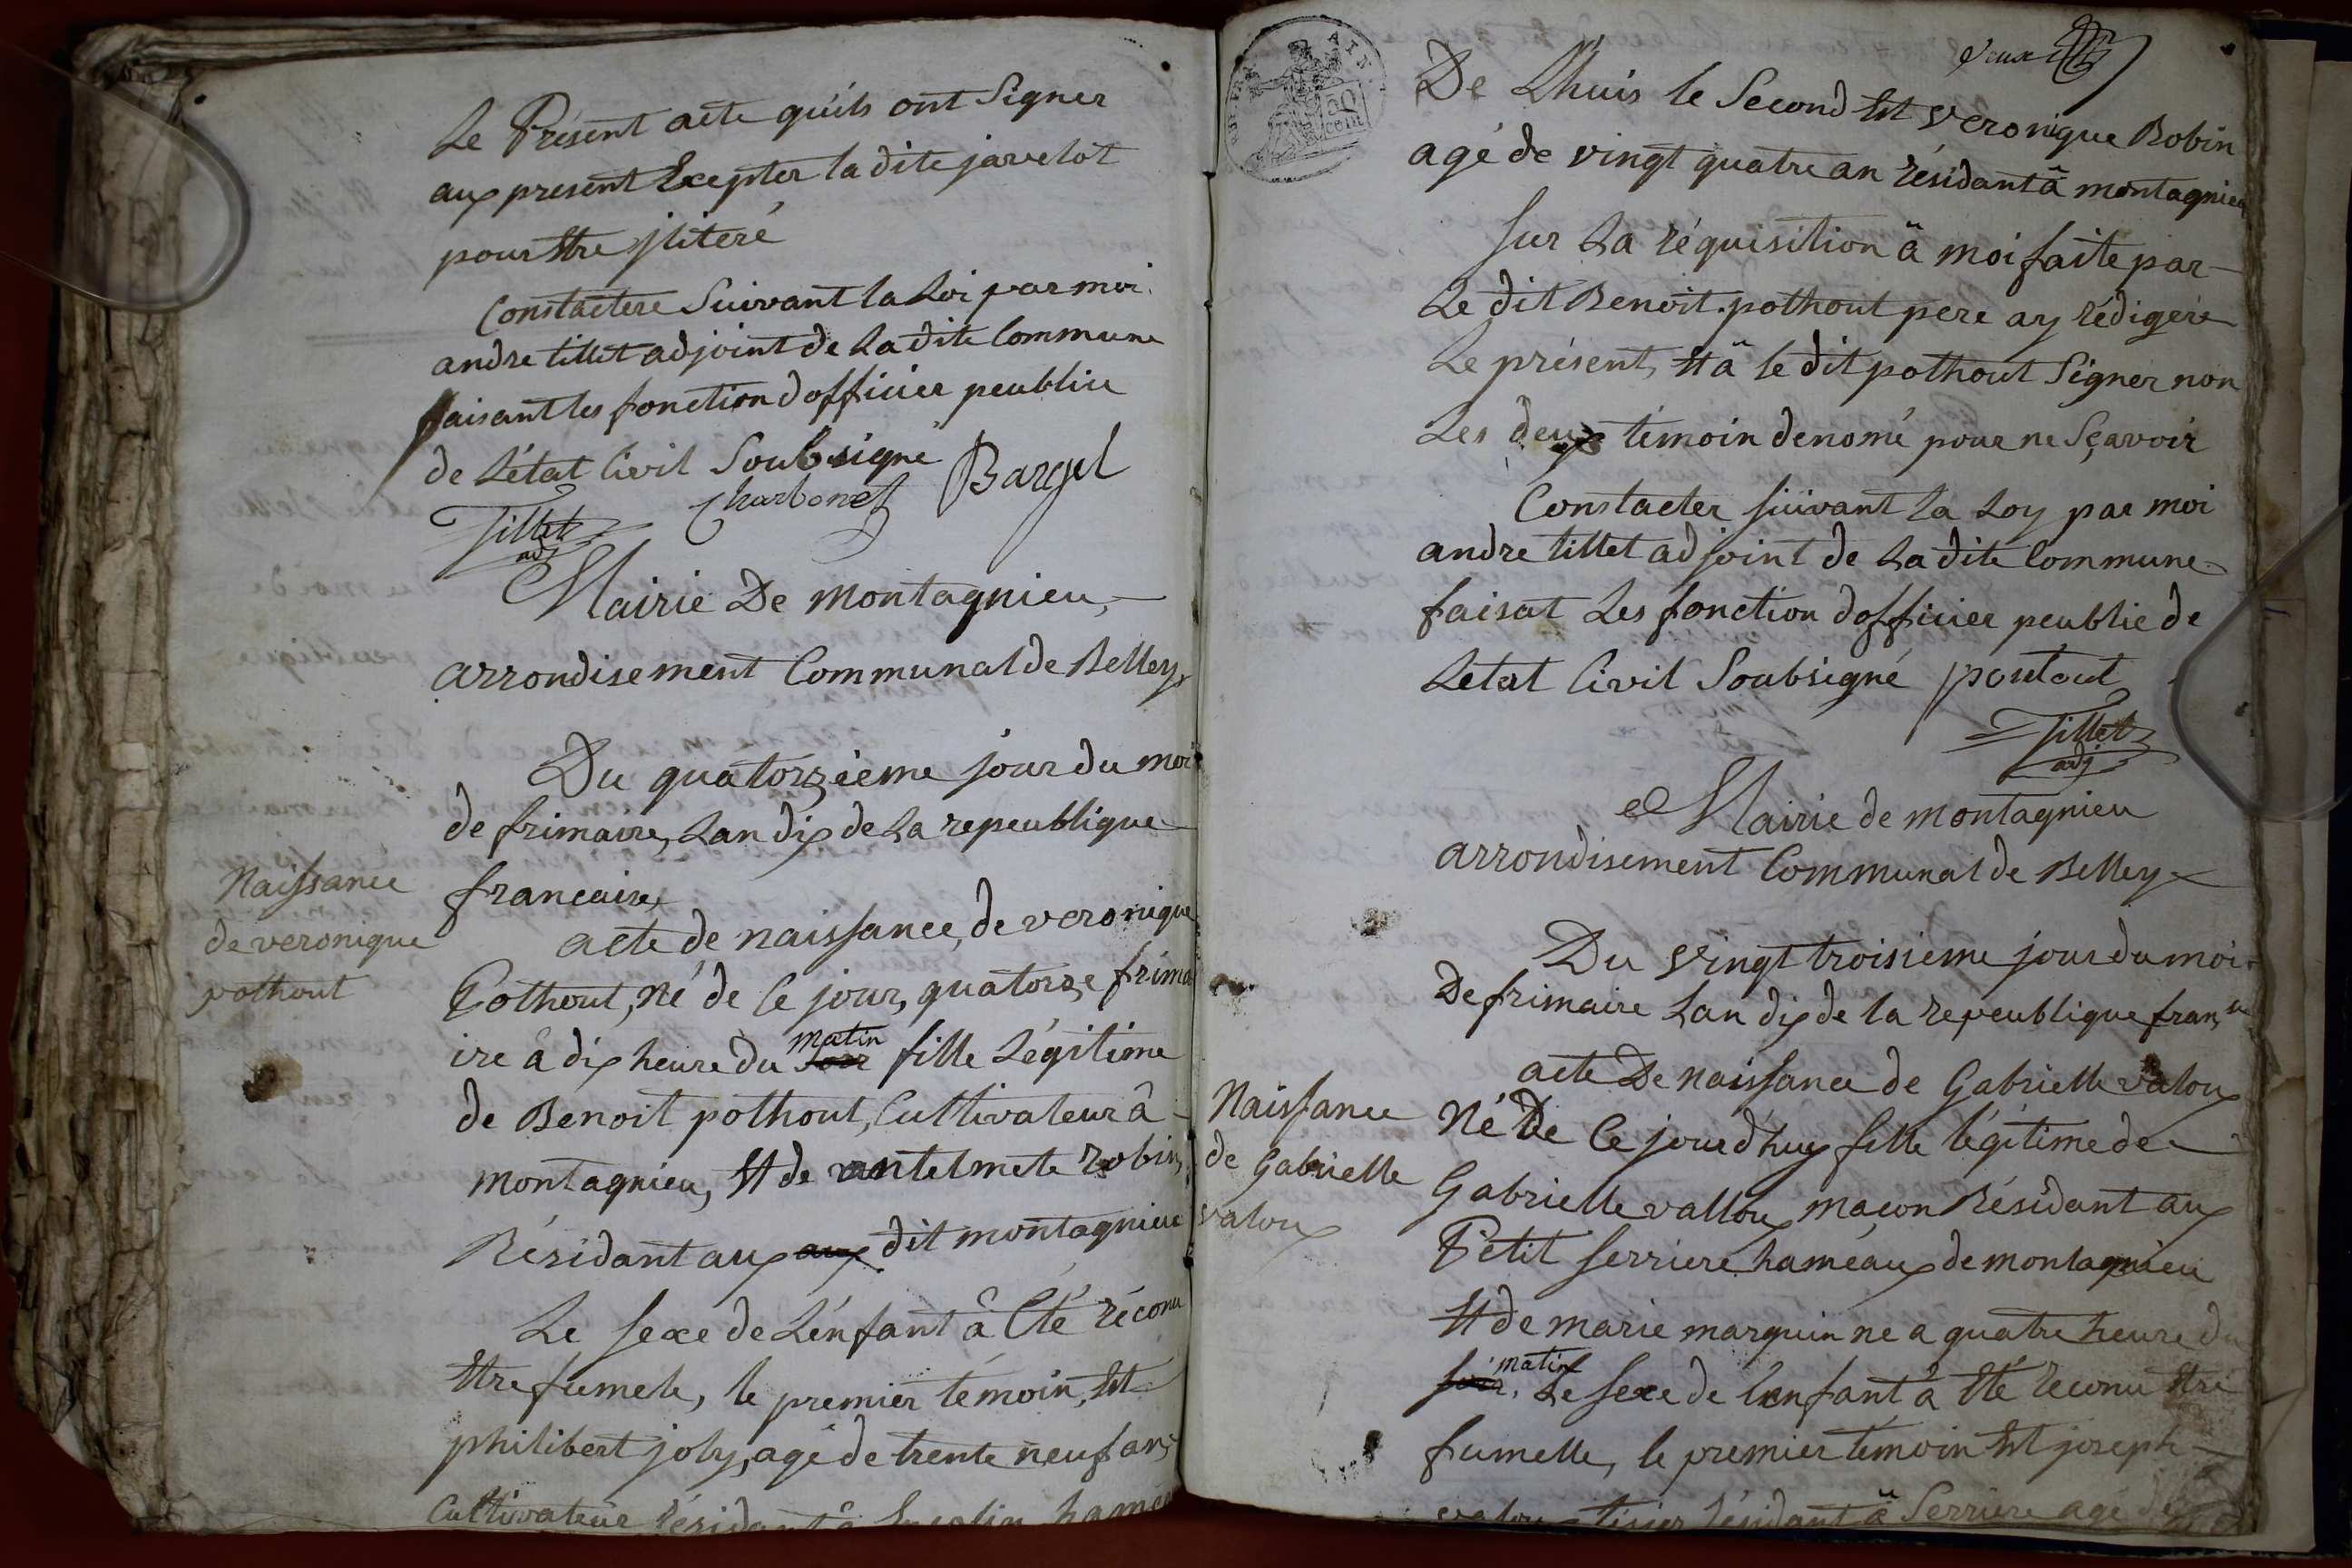 Le Présent acte qu'ils ont Signer
aux present Excepter la dite javelot
pour Etre jliteré
Constactere Suivant la Loi par moi
andre tillet adjoint de La dite Commune
faisant les fonction d'officier peublic
de L'état Civil Soubsigné
Bargel
Charbonet
Tillet
adj
Mairie De montagnieu,
arrondisement Communal de Belley
Du quatorzieme jour du moi
de frimaire, Lan dix de La repeublique
francaise,
Naissance
de veronique
pothout
acte de naissance, de veronique
Pothout, né de Ce jour, quatorze frima
ire â dix heure du soir matin fille Légitime
de Benoit pothout, Cultivateur â
montagnieu, Et de antelmete robin,
Résidant aux aux dit montagnieu
Le sexe de L'énfant â Eté réconu
Etre fumele, le premier témoin, Est
philibert joly, agé de trente neuf ans
Cultivateur résidant â hameau
deux
50
cent
De Lhuis le Second Est Veronique Robin
agé de vingt quatre an résidant â montagnieu
Sur La réquisition â moi faite par
Le dit Benoit pothout pere ay rédigére
Le présent, Et â le dit pothout Signer non
Les deux témoin denomé pour ne Sçavoir
Constacter suivant la Loy par moi
andre tillet adjoint de La dite Commune
faisat Les fonction d'officier peublic de
Letat Civil Soubsigné poutout
Tillet
adj
Mairie de montagnieu
arrondisement Communal de Belley
Du Vingt troisieme jour du moi
De frimaire Lan dix de la repeublique fran.se
Naissance
de Gabrielle
valoux
acte De naissance de Gabrielle valoux
Né De Ce jourd'huy fille légitime de
Gabrielle valloux maçon Résidant aux
Petit serriere haméaux de montagnieu
Et de marie marquin ne a quatre heure du
soir matin, Le sexe de L'enfant â Eté reconu Etre
fumelle, le premier témoin Est joseph
valoux tisier résidant â Serriere agé de